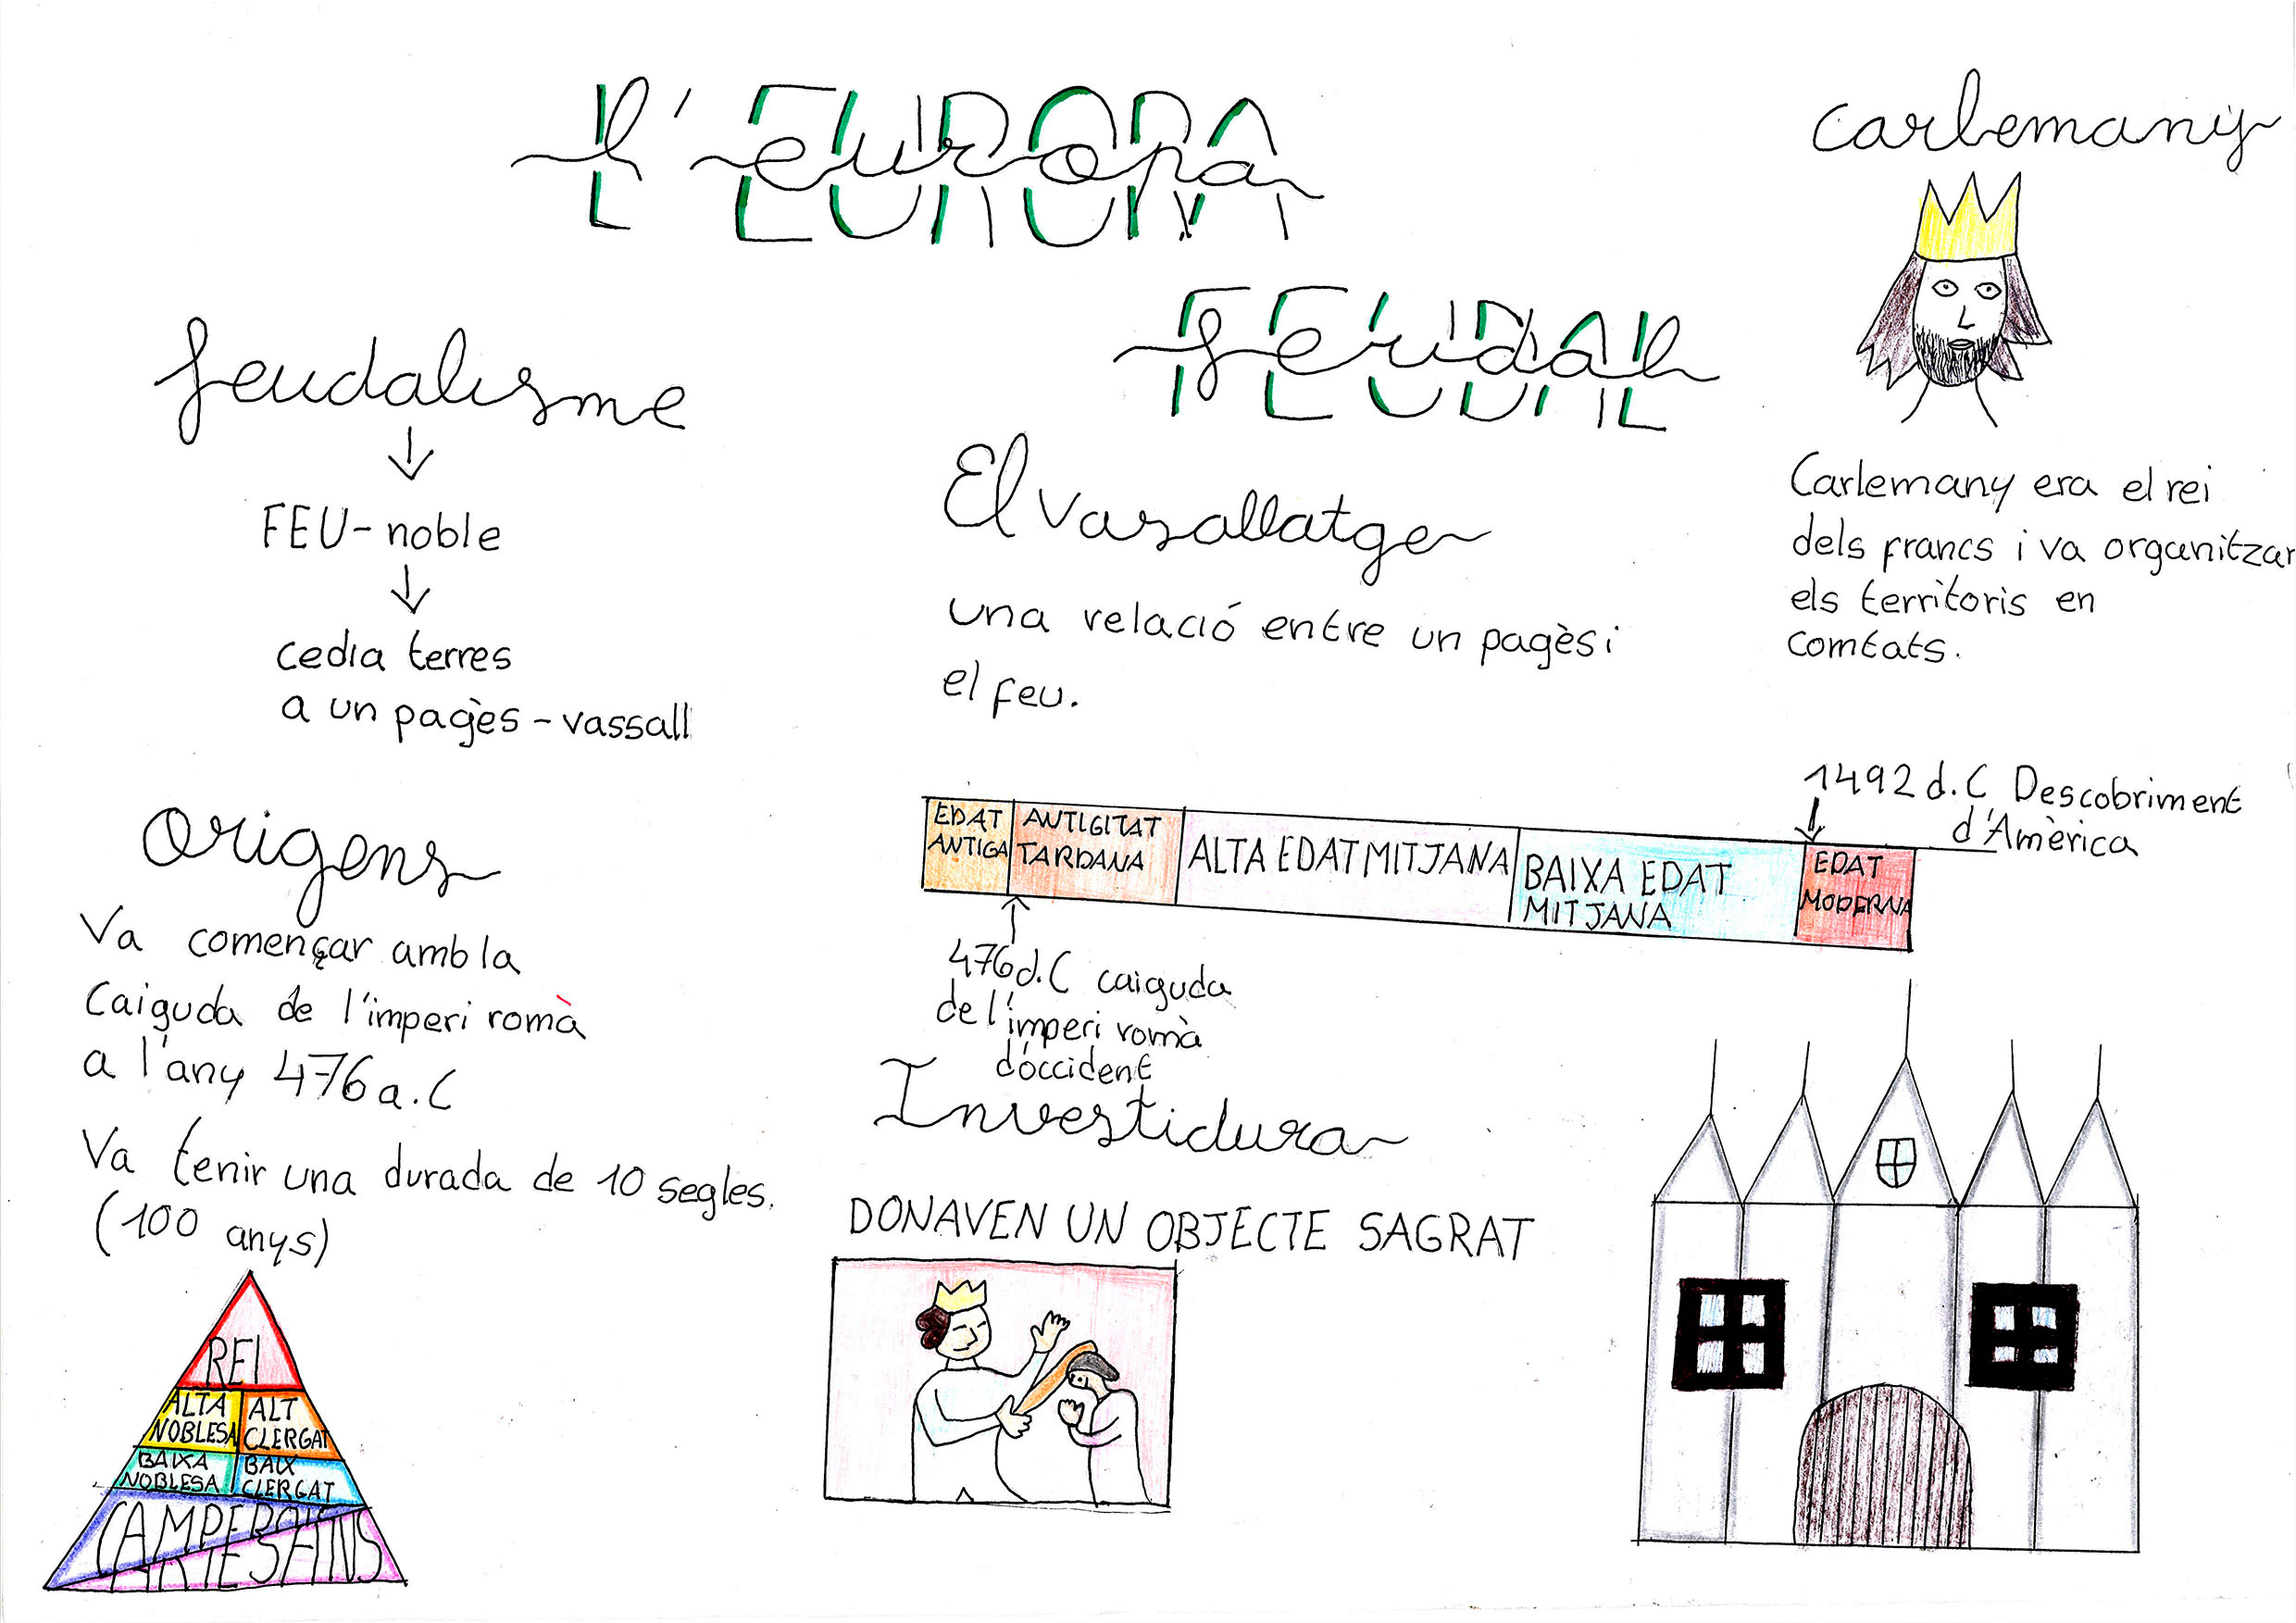 l'EUROPA
l'europa
FEUDAL
feudal
carlemany
Carlemany era el rei
dels francs i va organitzar
els territoris en
comtats.
feudalisme
FEU-noble
cedia terres
a un pagès-vassall
El vasallatge
una relació entre un pagès i
el feu.
Orígens
Va començar amb la
Caiguda de l'imperi romà
a l'any 476 a.C
Va tenir una durada de 10 segles.
(100 anys)
1492 d.C Descobriment
d'Amèrica
EDAT
ANTIGA
ANTIGITAT
TARDANA
ALTA EDAT MITJANA
BAIXA EDAT
MITJANA
EDAT
MODERNA
476 d.C caiguda
de l'imperi romà
d'occident
Investidura
DONAVEN UN OBJECTE SAGRAT
REI
ALTA
NOBLESA
ALT
CLERGAT
BAIXA
NOBLESA
BAIX
CLERGAT
CAMPEROLS
ARTESANS